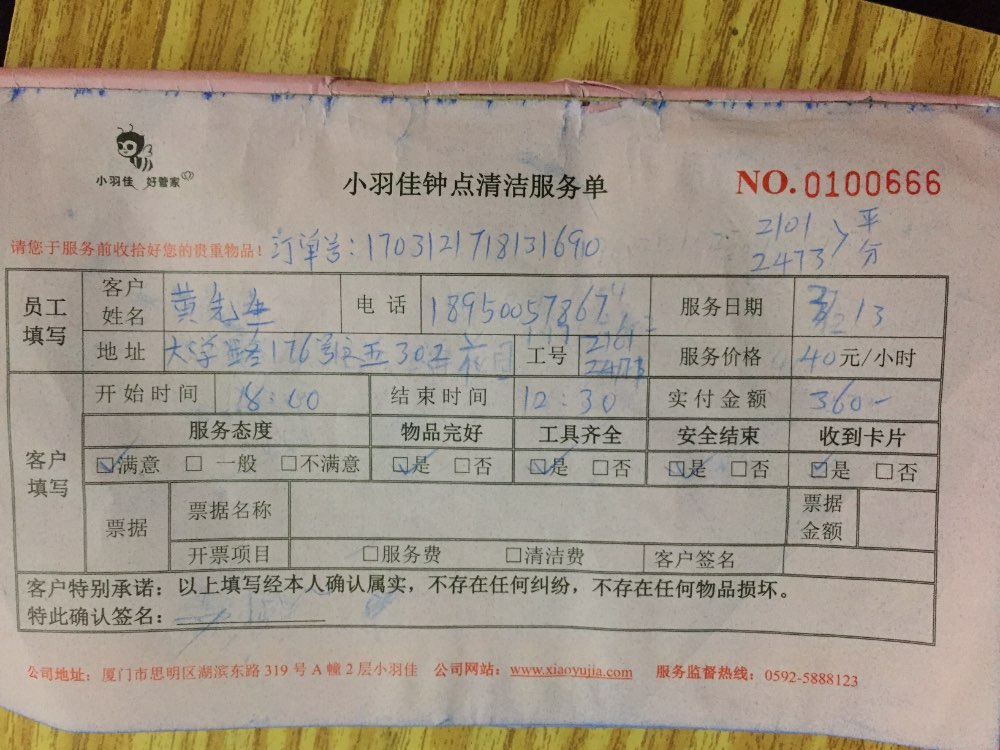 小羽佳 好管家
小羽佳钟点清洁服务单
NO. 0100666
请您于服务前收拾好您的贵重物品！ 订单号：1703121718131690
2101
2473 平分
员工填写 客户姓名 黄先生 电话 服务日期 13
地址 大学路176号 302 工号 2101 服务价格 40元/小时
2473
客户填写 开始时间 8:00 结束时间 12:30 实付金额 360-
服务态度 物品完好 工具齐全 安全结束 收到卡片
☑满意 □一般 □不满意 ☑是 □否 ☑是 □否 ☑是 □否 ☑是 □否
票据 票据名称 票据金额
开票项目 □服务费 □清洁费 客户签名
客户特别承诺：以上填写经本人确认属实，不存在任何纠纷，不存在任何物品损坏。
特此确认签名：
公司地址：厦门市思明区湖滨东路319号A幢2层小羽佳 公司网站：www.xiaoyujia.com 服务监督热线：0592-5888123